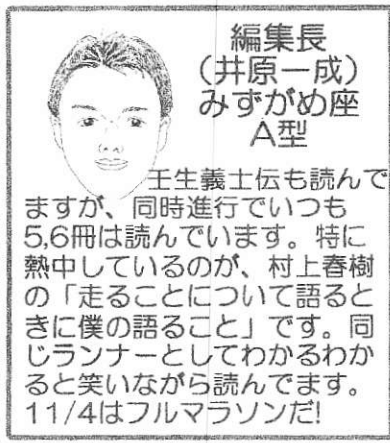 編集長
（井原一成）
みずがめ座
A型
壬生義士伝も読んで
ますが、同時進行でいつも
5,6冊は読んでいます。特に
熱中しているのが、村上春樹
の「走ることについて語ると
きに僕の語ること」です。同
じランナーとしてわかるわか
ると笑いながら読んでます。
11/4はフルマラソンだ!